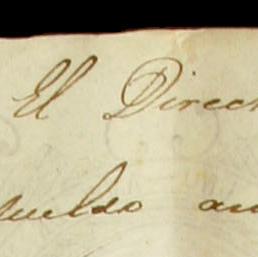 El Direct
sueldo an